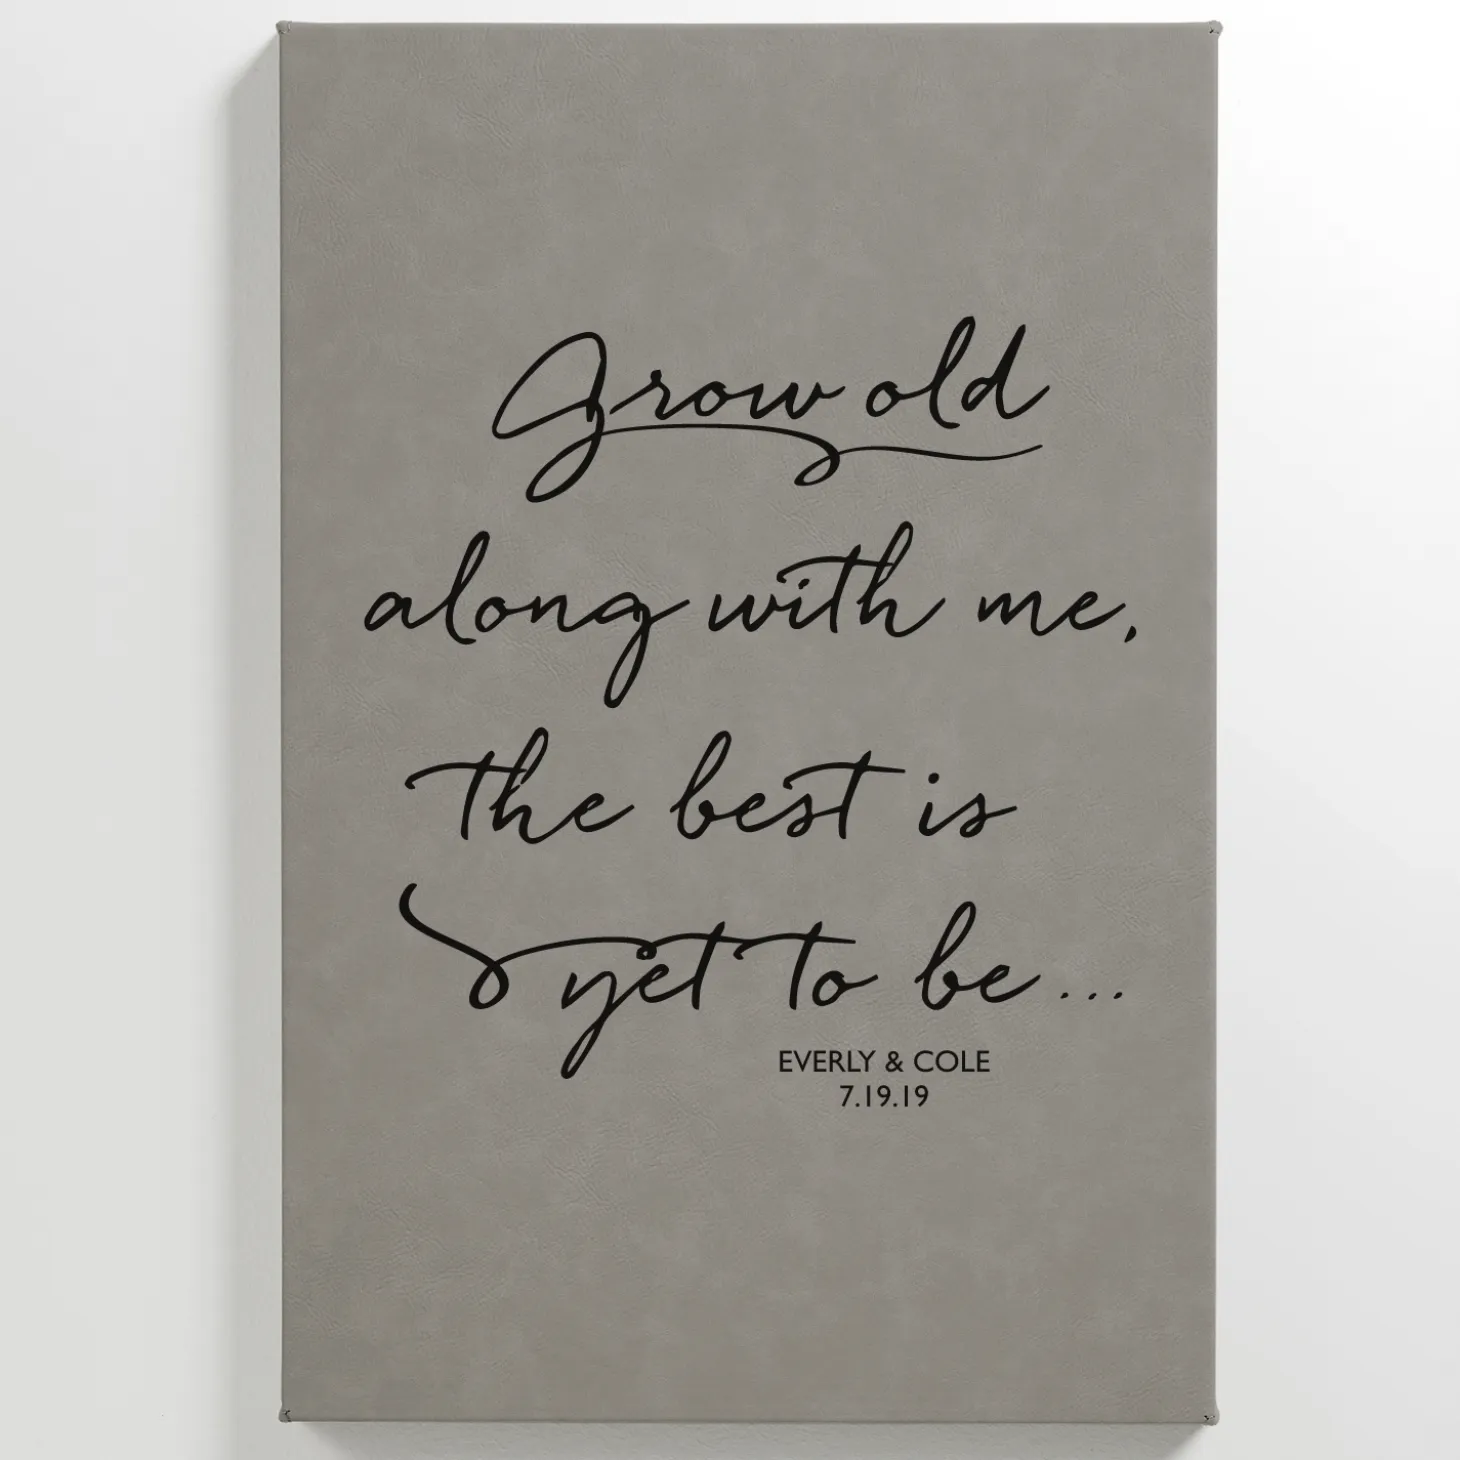 Grow old
along with me,
the best is
yet to be...
EVERLY & COLE
7.19.19